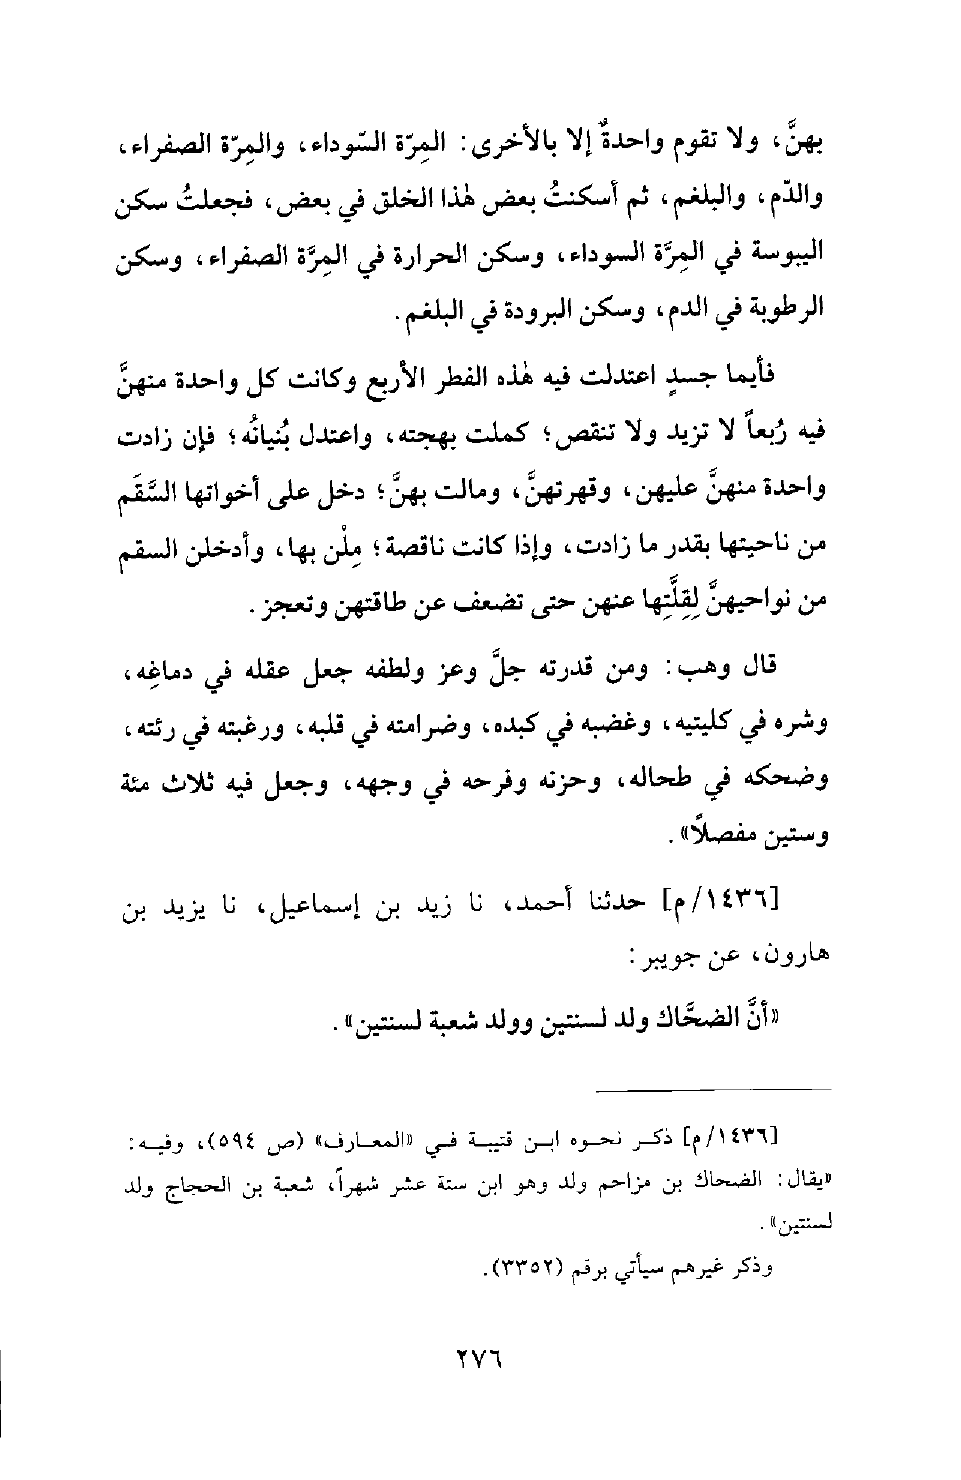 بهنَّ، ولا تقوم واحدةٌ إلا بالأخرى: المِرّة السّوداء، والمِرّة الصفراء،
والدّم، والبلغم، ثم أسكنتُ بعض هٰذا الخلق في بعض، فجعلتُ سكن
اليبوسة في المِرَّة السوداء، وسكن الحرارة في المِرَّة الصفراء، وسكن
الرطوبة في الدم، وسكن البرودة في البلغم.
فأيما جسدٍ اعتدلت فيه هٰذه الفطر الأربع وكانت كل واحدة منهنَّ
فيه رُبعاً لا تزيد ولا تنقص؛ كملت بهجته، واعتدل بُنيانُه؛ فإن زادت
واحدة منهنَّ عليهن، وقهرتهنَّ، ومالت بهنَّ؛ دخل على أخواتها السَّقَم
من ناحيتها بقدر ما زادت، وإذا كانت ناقصة؛ مِلْن بها، وأدخلن السقم
من نواحيهنَّ لِقِلَّتِها عنهن حتى تضعف عن طاقتهن وتعجز.
قال وهب: ومن قدرته جلَّ وعز ولطفه جعل عقله في دماغِه،
وشره في كليتيه، وغضبه في كبده، وضرامته في قلبه، ورغبته في رئته،
وضحكه في طحاله، وحزنه وفرحه في وجهه، وجعل فيه ثلاث مئة
وستين مفصلاً».
[١٤٣٦/م] حدثنا أحمد، نا زيد بن إسماعيل، نا يزيد بن
هارون، عن جويبر:
«أنَّ الضحَّاك ولد لسنتين وولد شعبة لسنتين».
[١٤٣٦/م] ذكر نحوه ابن قتيبة في «المعارف» (ص ٥٩٤)، وفيه:
«يقال: الضحاك بن مزاحم ولد وهو ابن ستة عشر شهراً، شعبة بن الحجاج ولد
لسنتين».
وذكر غيرهم سيأتي برقم (٣٣٥٢).
٢٧٦